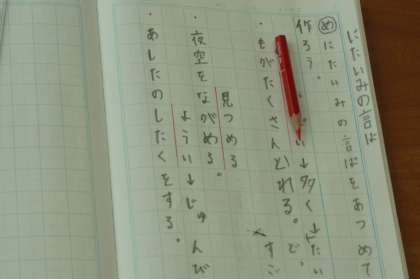 にたいみの言ば
めにたいみの言ばをあつめて
作ろう。
・きがたくさんとれる。
い→多く→たい
・夜空をながめる。
見つめる
・あしたのしたくをする。
ようい→じゅんび